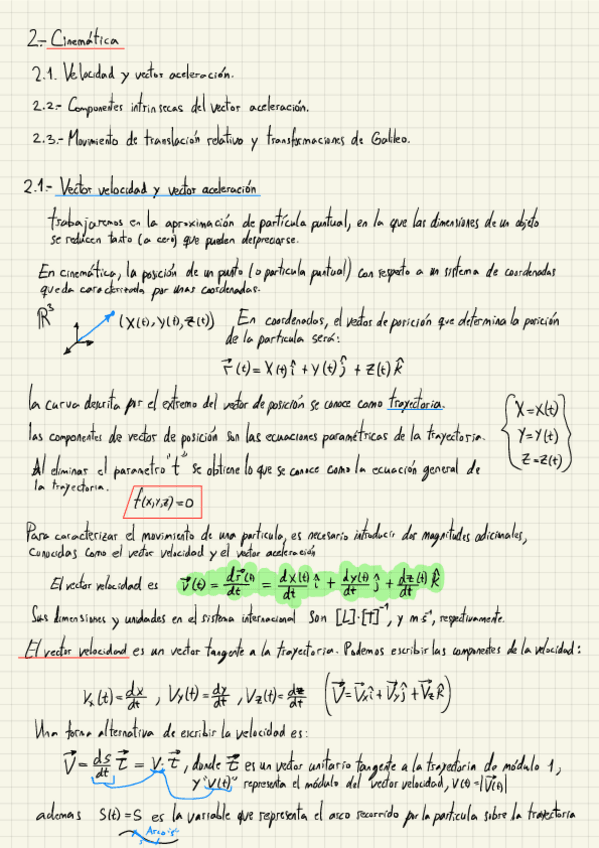 2.- Cinemática
2.1. Velocidad y vector aceleración.
2.2.- Componentes intrinsecas del vector aceleración.
2.3.- Movimiento de translación relativo y transformaciones de Galileo.
2.1.- Vector velocidad y vector aceleración
trabajaremos en la aproximación de partícula puntual, en la que las dimensiones de un objeto
se reducen tanto (a cero) que pueden despreciarse.
En cinemática, la posición de un punto (o particula puntual) con respeto a un sistema de coordenadas
queda caracterizada por unas coordenadas.
ℝ³ (X(t), Y(t), Z(t)) En coordenadas, el vector de posición que determina la posición
de la particula será:
r⃗(t) = X(t) î + Y(t) ĵ + Z(t) k̂
la curva descrita por el extremo del vector de posición se conoce como trayectoria.
las componentes de vector de posición son las ecuaciones parámetricas de la trayectoria.
{X=X(t)
Y=Y(t)
Z=Z(t)}
Al eliminar el parametro "t" se obtiene lo que se conoce como la ecuación general de
la trayectoria.
f(x,y,z) = 0
Para caracterizar el movimiento de una particula, es necesario introducir dos magnitudes adicionales,
conocidas como el vector velocidad y el vector aceleración
El vector velocidad es v⃗(t) = dr⃗(t)/dt = dx(t)/dt î + dy(t)/dt ĵ + dz(t)/dt k̂
Sus dimensiones y unidades en el sistema internacional son [L]·[T]⁻¹, y m·s⁻¹, respectivamente.
El vector velocidad es un vector tangente a la trayectoria. Podemos escribir las componentes de la velocidad:
Vx(t) = dx/dt , Vy(t) = dy/dt , Vz(t) = dz/dt (V⃗ = V⃗xî + V⃗yĵ + V⃗zk̂)
Una forma alternativa de escribir la velocidad es:
V⃗ = ds/dt τ⃗ = V·τ⃗, donde τ⃗ es un vector unitario tangente a la trayectoria de módulo 1,
y "V(t)" representa el módulo del vector velocidad, V(t) = |V⃗(t)|
ademas S(t) = S es la variable que representa el arco recorrido por la particula sobre la trayectoria